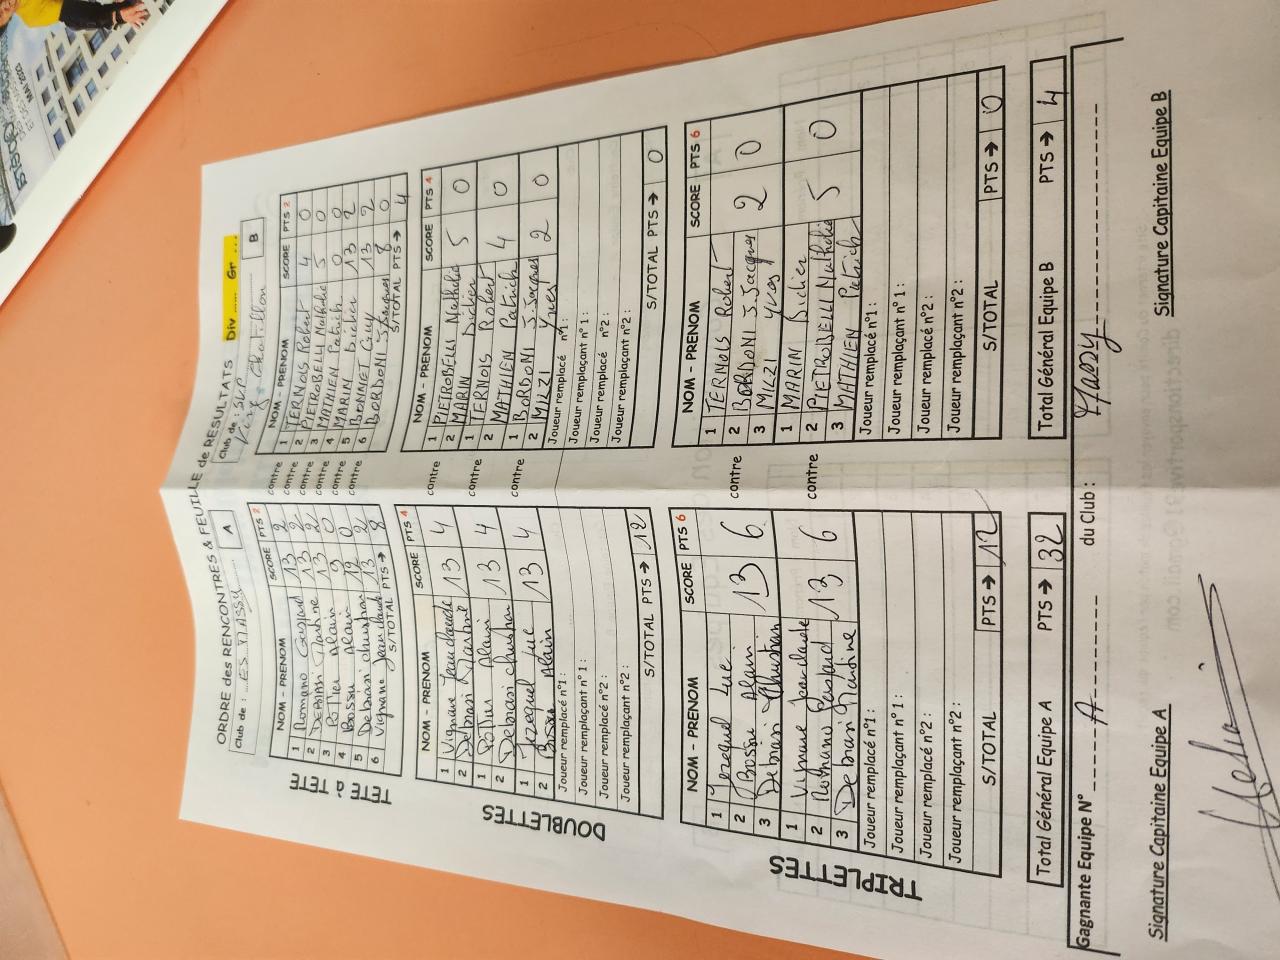 ORDRE des RENCONTRES & FEUILLE de RESULTATS Div ...... Gr ...
Club de : ES MASSY A
Club de : SVP Viry Chatillon B
TÊTE à TÊTE
NOM - PRENOM SCORE PTS 2 contre NOM - PRENOM SCORE PTS 2
1 Romano Gaspard 13 2 contre 1 TERNOIS Robert 4 0
2 Debiasi Martine 13 2 contre 2 PIETROBELLI Nathalie 5 0
3 Pottier Alain 13 2 contre 3 MATHIEN Patrick 0 0
4 Bossu Alain 9 0 contre 4 MARIN Didier 13 2
5 Debiasi Christian 12 0 contre 5 BONNET Guy 13 2
6 Vignane Jean claude 13 2 6 BORDONI J.Jacques 8 0
S/TOTAL PTS → 8 S/TOTAL PTS → 4
DOUBLETTES
NOM - PRENOM SCORE PTS 4 NOM - PRENOM SCORE PTS 4
1 Vignane Jean claude 13 4 contre 1 PIETROBELLI Nathalie 5 0
2 Debiasi Martine 2 MARIN Didier
1 Pottier Alain 13 4 contre 1 TERNOIS Robert 4 0
2 Debiasi Christian 2 MATHIEN Patrick
1 Jezequel Luc 13 4 contre 1 BORDONI J.Jacques 2 0
2 Bossu Alain 2 MILZI Yves
Joueur remplacé n°1 : Joueur remplacé n°1 :
Joueur remplaçant n° 1 : Joueur remplaçant n° 1 :
Joueur remplacé n°2 : Joueur remplacé n°2 :
Joueur remplaçant n°2 : Joueur remplaçant n°2 :
S/TOTAL PTS → 12 S/TOTAL PTS → 0
TRIPLETTES
NOM - PRENOM SCORE PTS 6 NOM - PRENOM SCORE PTS 6
1 Jezequel Luc 1 TERNOIS Robert
2 Bossu Alain 13 6 contre 2 BORDONI J.Jacques 2 0
3 Debiasi Christian 3 MILZI Yves
1 Vignane Jean claude 1 MARIN Didier
2 Romano Gaspard 13 6 contre 2 PIETROBELLI Nathalie 5 0
3 Debiasi Martine 3 MATHIEN Patrick
Joueur remplacé n°1 : Joueur remplacé n°1 :
Joueur remplaçant n° 1 : Joueur remplaçant n° 1 :
Joueur remplacé n°2 : Joueur remplacé n°2 :
Joueur remplaçant n°2 : Joueur remplaçant n°2 :
S/TOTAL PTS → 12 S/TOTAL PTS → 0
Total Général Equipe A PTS → 32 Total Général Equipe B PTS → 4
Gagnante Equipe N° A du Club : Massy
Signature Capitaine Equipe A Signature Capitaine Equipe B